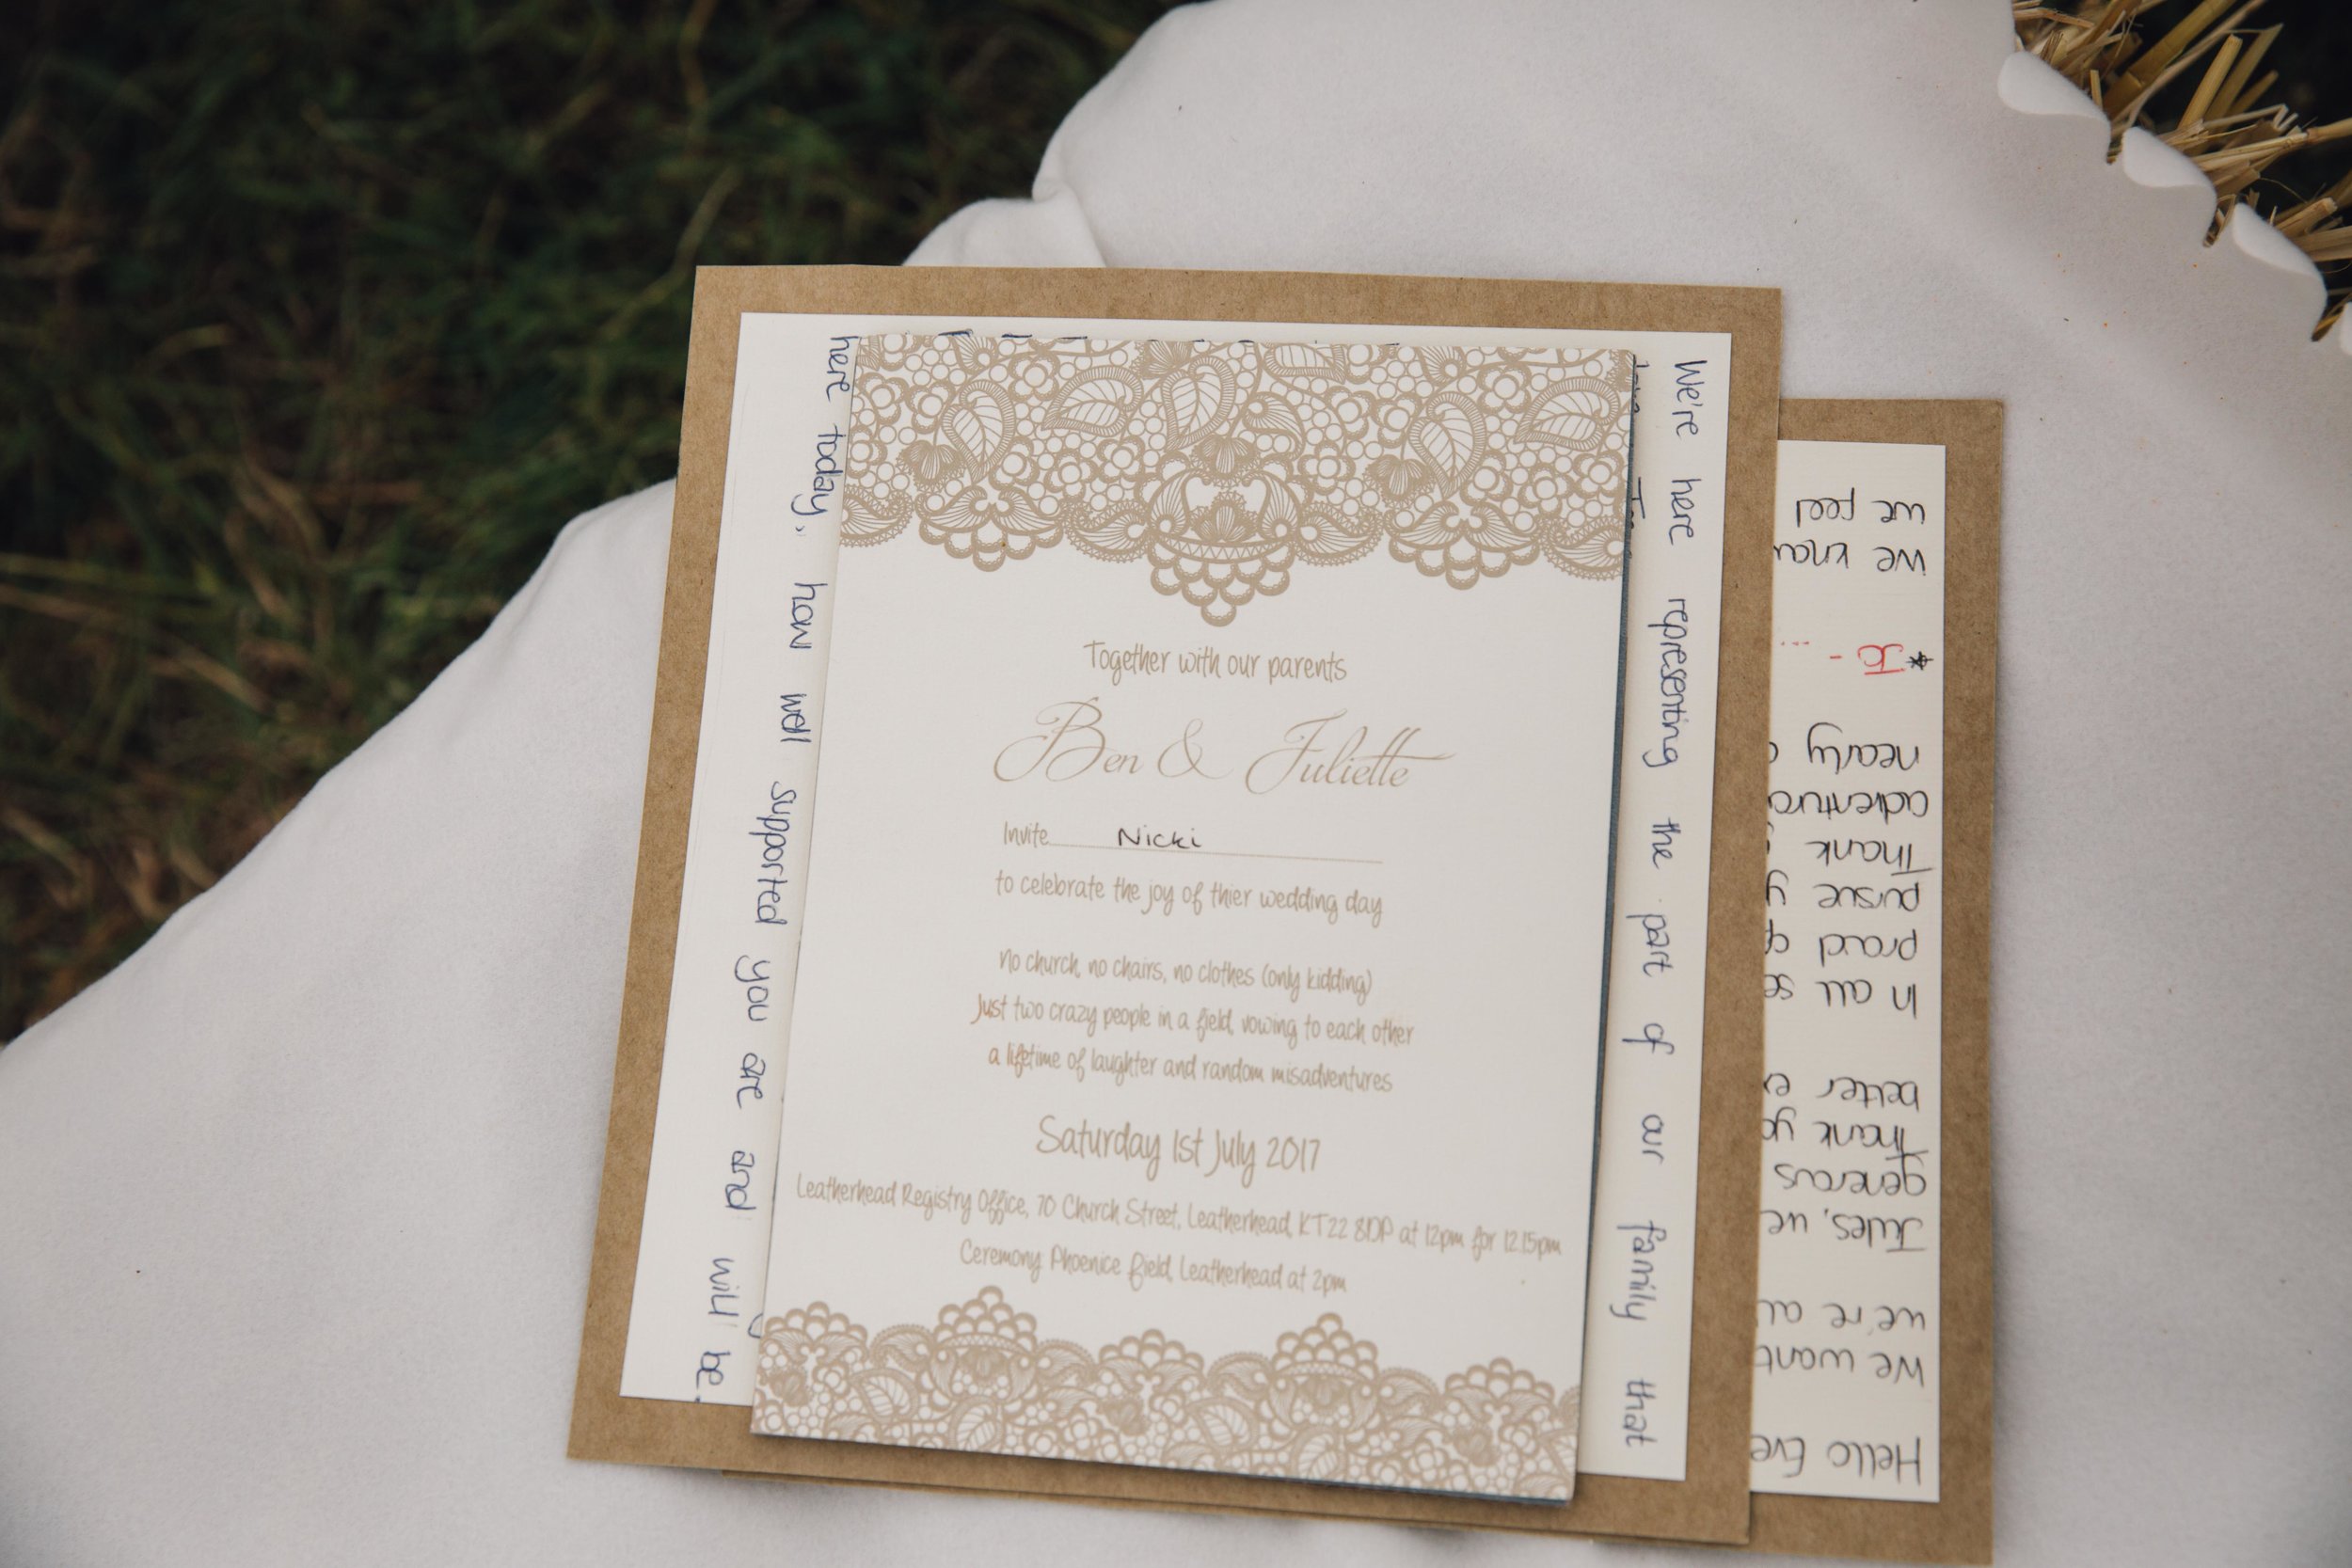 Together with our parents
Ben & Juliette
Invite Nicki
to celebrate the joy of thier wedding day
No church, no chairs, no clothes (only kidding)
Just two crazy people in a field, vowing to each other
a lifetime of laughter and random misadventures
Saturday 1st July 2017
Leatherhead Registry Office, 70 Church Street, Leatherhead, KT22 8DP at 12pm for 12.15pm
Ceremony Phoenice Field, Leatherhead at 2pm
We're here representing the part of our family that
here today, how well supported you are and will be
Hello
We want
we're
Jules, we
generous
Thank
better
In all
proud
pursue
Thank
nearly
* Jo - ...
We
we feel